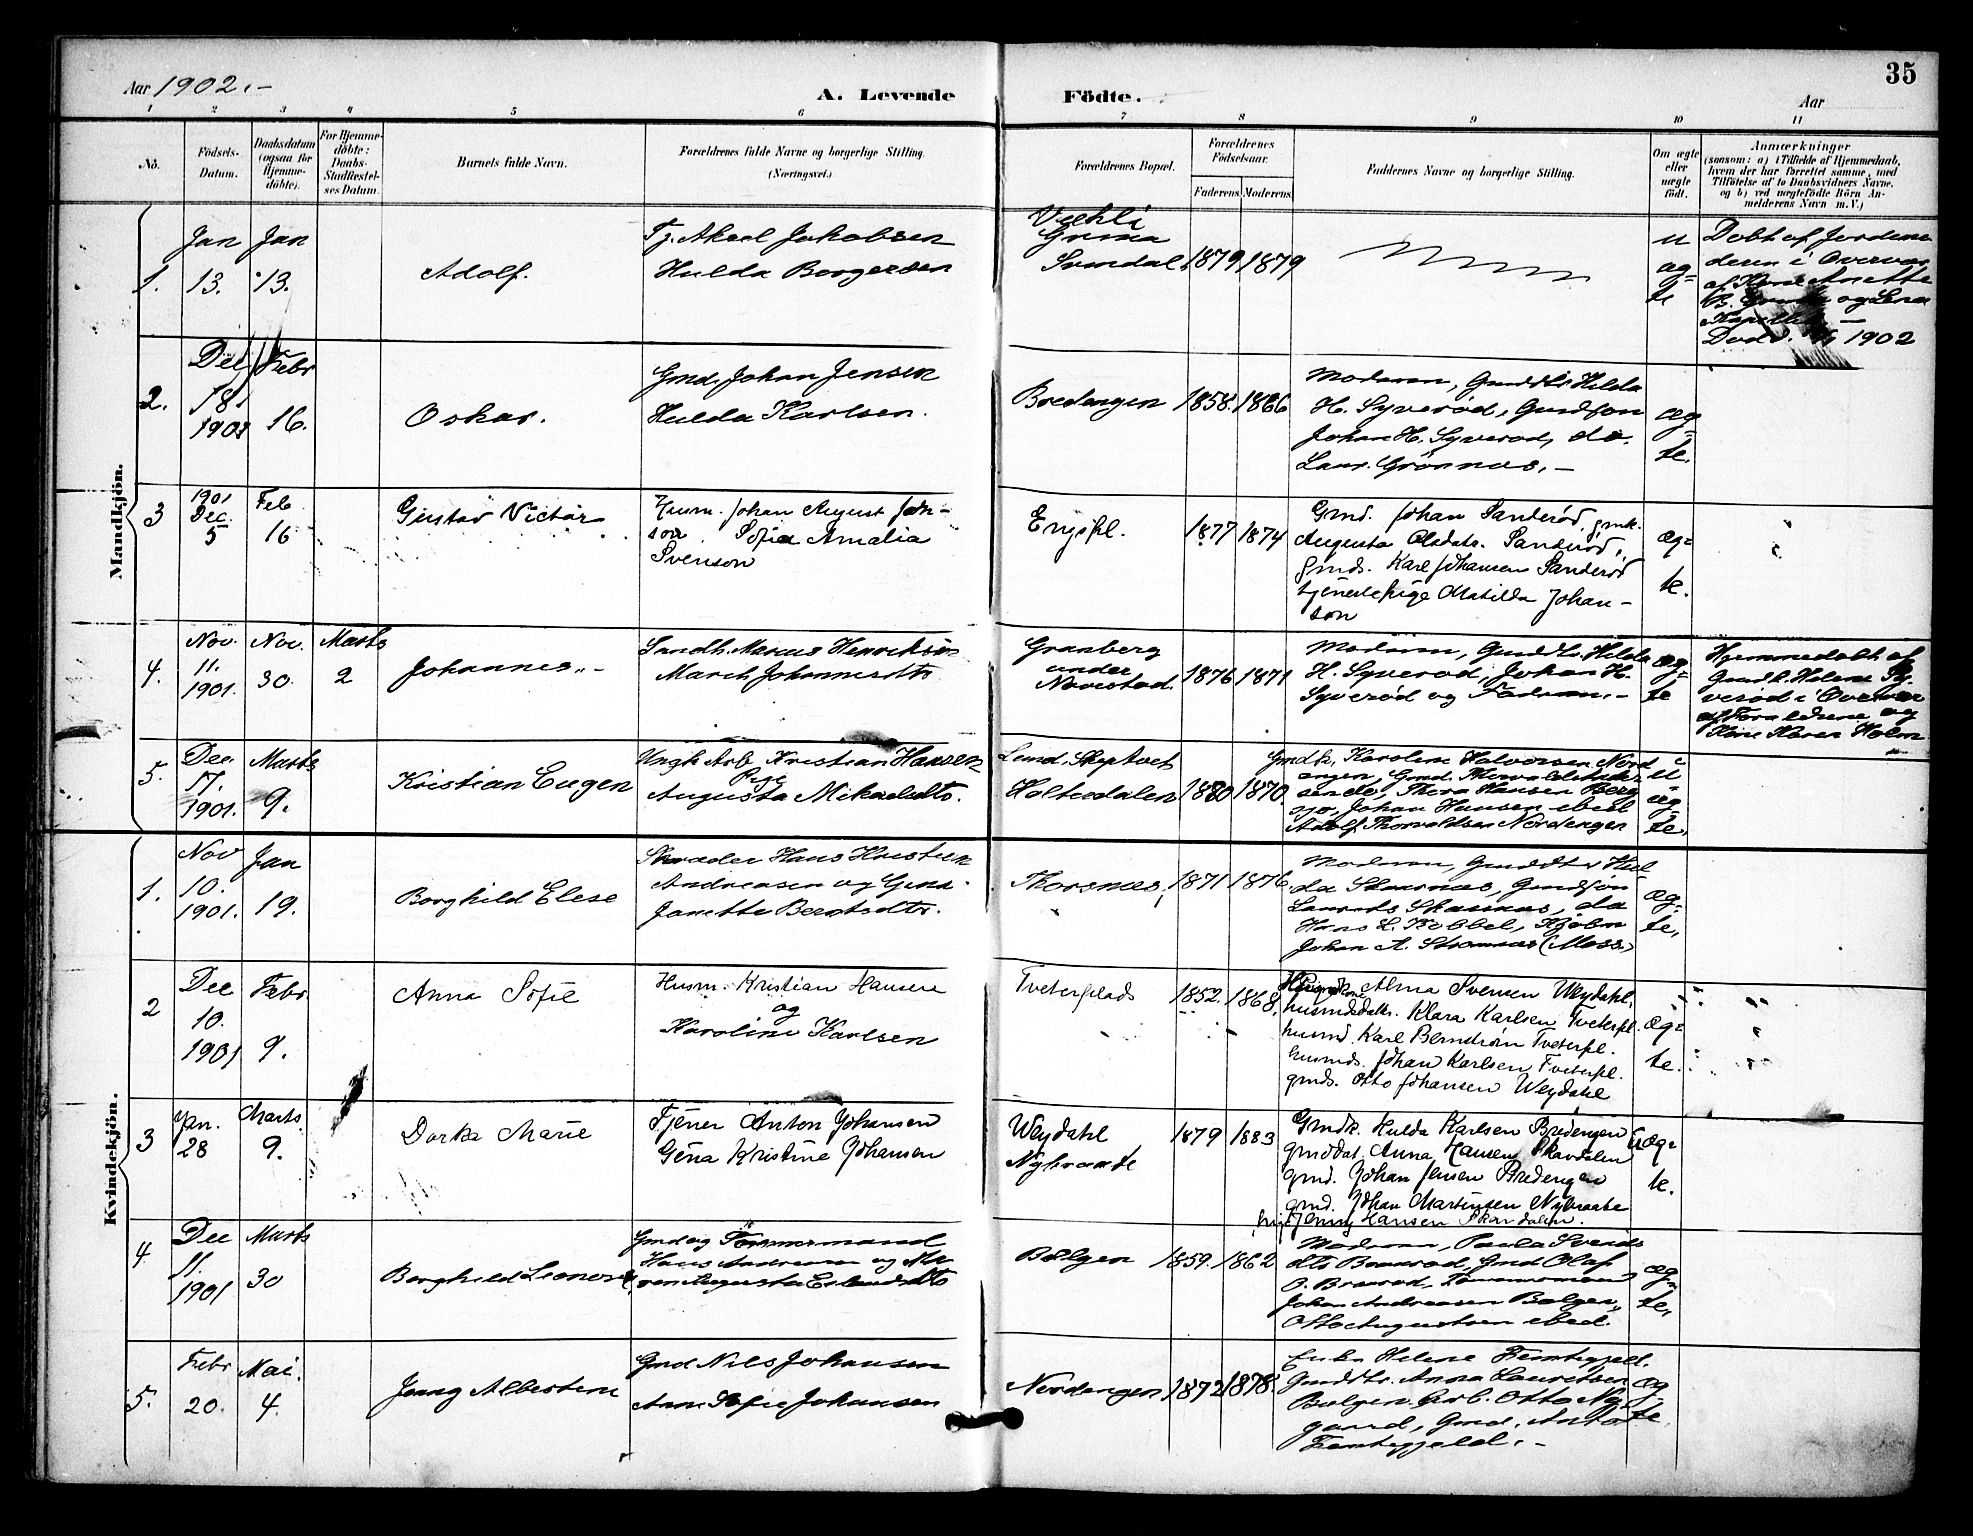 35
Aar 1902.-
A. Levende Födte.
Aar
1 2 3 4 5 6 7 8 9 10 11
No.
Födsels-
Datum.
Daabsdatum
(ogsaa for
Hjemme-
döbte).
For Hjemme-
döbte:
Daabs-
Stadfæstel-
ses Datum.
Barnets fulde Navn.
Forældrenes fulde Navne og borgerlige Stilling.
(Næringsvei.)
Forældrenes Bopæl.
Forældrenes
Födselsaar.
Faderens. Moderens.
Faddernes Navne og borgerlige Stilling.
Om ægte
eller
uægte
födt.
Anmærkninger
(saasom: a) i Tilfælde af Hjemmedaab,
hvem der har forrettet samme, med
Tilföielse af to Daabsvidners Navne.
og b) ved uægtefödte Börn An-
melderens Navn m. V.)
Mandkjön.
1.
Jan
13.
Jan
13.
Adolf.
Tj. Aksel Jakobsen
Hulda Borgersen
Svendal
1879 1879
u
æg=
te
Döbt af Jordemo
deren i Overvær
1902
2.
Dec
18
1901
Febr
16.
Oskar.
Gmd. Johan Jensen
Hulda Karlsen.
Bredengen
1858. 1866
Moderen, Gmddtr Hilda
H. Syveröd, Gmdsön
Johan H. Syveröd, do.
Laur. Grönnæs. -
æg
te.
3
1901
Dec.
5
Feb
16
Gustav Victor
Husm. Johan August Jon-
son. Sofia Amalia
Svenson
Engspl.
1877 1874
Gmd. Johan Sanderöd, gmk.
Augusta Olsdatr. Sanderöd,
gmds. Karl Johansen Sanderöd
tjenestepige Matilda Johan-
son
æg=
te.
4.
Nov.
11.
1901.
Nov.
30.
Marts
2
Johannes. -
Landh. Marcus Henriksen
Maren Johannesdtr
Granberg
under
Navestad.
1876 1871
Moderen, Gmddtr. Hilda
H. Syveröd, Johan H.
Syveröd og Faderen. -
æg=
te
Hjemmedöbt af
Gmdk. Helene Sy
veröd i Overvær
af Forældrene og
Kone Karen Holm
5.
Dec.
17.
1901.
Marts
9.
Kristian Eugen
Ungk Arb. Kristian Hansen
Pige
Augusta Mikaelsdtr.
Lund, Skeptvet
Holtedalen
1880 1870.
Gmdk. Karoline Halvorsen Nord
engen, Gmd.
Thora Hansen Berg
Johan Hansen ibid
Adolf Thorvaldsen Nordengen
u
æg-
te.
Kvindekjön.
1.
Nov
10.
1901.
Jan
19.
Borghild Elese
Skræder Hans Kristian
Andreasen og Gina
Janette Berntsdtr.
Thorsnæs,
1871 1876.
Moderen, Gmddtr Hul
da Skaarnæs, Gmdsön
Laurits Skaarnæs, do
Hans L. Kobbel,
Johan A. Strömnæs (Moss)
æg-
te,
2
Dec
10.
1901
Febr.
9.
Anna Sofie
Husm. Kristian Hansen
og
Karoline Karlsen
Tveterplads
1852. 1868.
Alma Svensen Weydahl,
husmdsdatr. Klara Karlsen Tveterpl.
husmd. Karl Berndsön Tveterpl.
husmds. Johan Karlsen Tveterpl.
gmds. Otto Johansen Weydahl
æg=
te.
3
Jan.
28
Marts
9.
Dorka Marie
Tjener Anton Johansen
Gena Kristine Johansen
Weydahl
Nybraate
1879 1883
Gmdk. Hulda Karlsen Bredengen
gmddat. Anna Hansen Skardalen
gmd. Johan Jensen Bredengen
gmd. Johan Martinsen Nybraate
Jenny Hansen Skardalen.
uæg=
te.
4
Dec
11.
1901
Marts
30
Borghild Leonora
Gmd og Tömmermand
Hans Andreasen og Ma
ren Augusta Erlandsdtr
Bölgen
1859. 1862
Moderen, Paula Svends
dtr Braaröd, Gmd Olaf
O. Braaröd, Tömmermand
Johan Andreasen Bølgen,
Otto Augustsen ibid.
æg=
te,
5.
Febr
20.
Mai.
4.
Jenny Albertine
Gmd Nils Johansen
Ann Sofie Johansen
Nordengen
1872 1878.
Enke Helene Femtegjeld.
Gmddtr. Anna Lauritsen
Bölgen. Arb. Otto Ny
gaard, Gmd. Anton
Femtegjeld. -
æg
te.